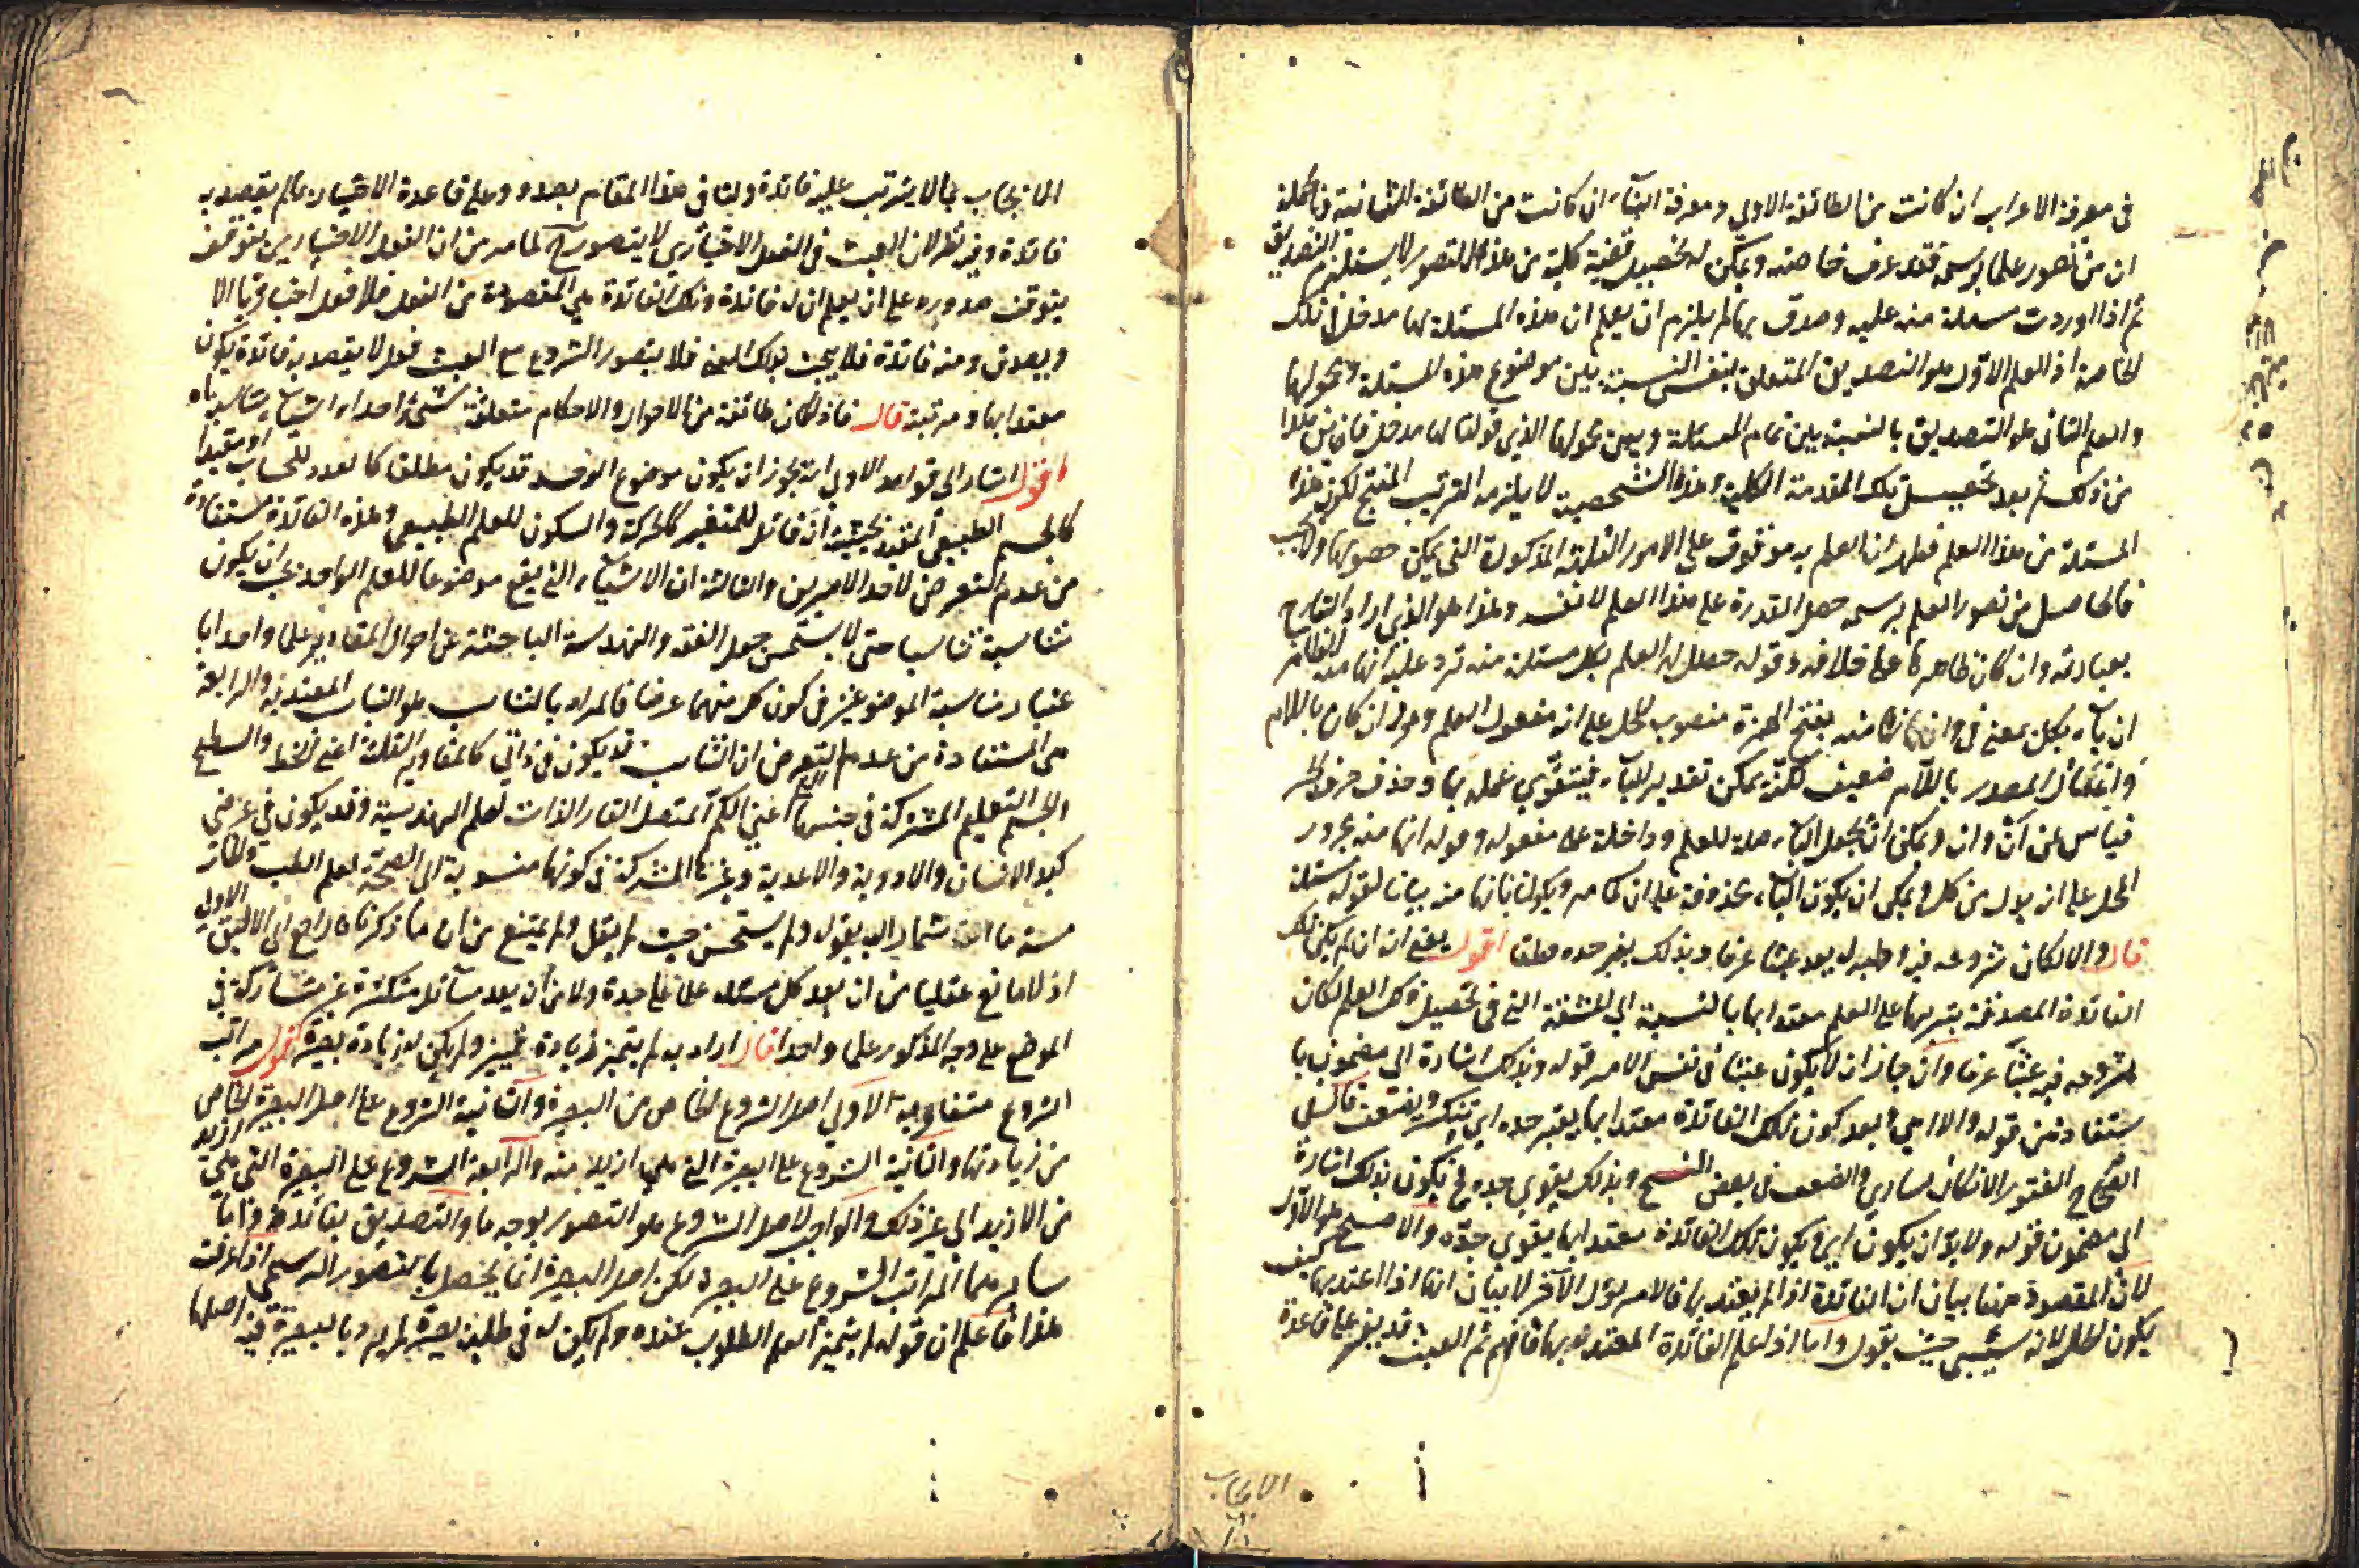 في معرفة الاعراب ان كانت من الطائفة الاولى ومعرفة البناء ان كانت من الطائفة الثانية فالحاصلة
ان من تصور علما برسمه فقد عرف خاصته ويمكن له تحصيل قضية كلية من هذا التصور لا يستلزم التصديق
ثم اذا اوردت مسئلة منه عليه وصدق بها لم يلزم ان يعلم ان هذه المسئلة لها مدخل في تلك
الخاصة اذ العلم الاول هو التصديق المتعلق بنفس النسبة بين موضوع هذه المسئلة ومحمولها
والعلم الثاني هو التصديق بالنسبة بين تمام المسئلة وبين محمولها الذي قولنا لها مدخل فاين هذا
من ذلك ثم بعد تحصيل تلك المقدمة الكلية وهذه الشخصية لا يلزمه الترتيب المنتج لكون هذه
المسئلة من هذا العلم فظهر ان العلم به موقوف على الامور الثلثة المذكورة التي يمكن حصولها ولا يجب
فالحاصل من تصور العلم برسمه حصل القدرة على هذا العلم لا نفسه وهذا هو الذي اراد الشارح
بعبارته وان كان ظاهرها على خلافه وقوله حصل له العلم بكل مسئلة منه ترد عليه انها منه الظاهر
ان باء بكل بمعنى في وان انها منه بفتح الهمزة منصوب المحل على انه مفعول العلم وهو ان كان باللام
واعمال المصدر باللام ضعيف لكنه يمكن تقدير الباء فيتقوى عمله بها وحذف حرف الجر
قياس في أن وان ويمكن ان يجعل الباء صلة للعلم وداخلة على مفعوله وقوله انها منه مجرور
المحل على انه بدل من كل ويمكن ان يكون الباء محذوفة على ان كما مر ويكون بانها منه بيانا لقوله مسئلة
قال والا لكان شروعه فيه وطلبه له يعد عبثا عرفا وبذلك يفتر جده قطعا اقول يعني انه ان لم يكن تلك
الفائدة المصدقة بترتبها على العلم معتدا بها بالنسبة الى المشقة التي في تحصيل ذلك العلم لكان
شروعه فيه عبثا عرفا وان جاز ان لا يكون عبثا في نفس الامر قوله وبذلك اشارة الى مضمون ما
يستفاد من قوله والا اي بعد كون تلك الفائدة معتدا بها يفتر جده اي ينكسر ويضعف قال في
الصحاح الفتور الانكسار والضعف في بعض النسخ وبذلك يقوي جده فح يكون بذلك اشارة
الى مضمون قوله ولا بد ان يكون اي ويكون تلك الفائدة معتدا بها يقوي جده والاصح هو الاول
لان المقصود منها بيان ان الفائدة اذا لم يعتد بها فالامر يؤل الى آخر لا بيان انها اذا اعتد بها كيف
يكون الحال لانه سيجيء حيث يقول واما اذا علم الفائدة المعتد بها فافهم ثم العبث قد يفسر على قاعدة
الايجاب
الايجاب بما لا يترتب عليه فائدة وليس في هذا المقام بصدده وعلى قاعدة الاختيار بما لم يقصد به
فائدة وفيه نظر لان العبث في الفعل الاختياري لا يتصور ح لما مر من ان الفعل الاختياري يتوقف
يتوقف صدوره على ان يعلم ان له فائدة وتلك الفائدة هي المقصودة من الفعل فلا فعل اختياريا الا
ويصدق ومنه فائدة فلا عبث بذلك المعنى فلا يتصور الشروع مع العبث فعل لا يقصد به فائدة يكون
معتدا بها ومرتبة قال فاذا كان طائفة من الاحوال والاحكام متعلقة بشيء واحد او اشياء متناسبة
اقول اشار الى قواعد الاولى انه يجوز ان يكون موضوع العلم قد يكون مطلقا كالعدد للحساب او مقيدا
كالجسم الطبيعي المقيد بحيثية انه قابل للتغير كالحركة والسكون للعلم الطبيعي وهذه الفائدة مستفادة
من عدم التعرض لاحد الامرين والثالثة ان الاشياء التي يقع موضوعا للعلم الواحد يجب ان يكون
متناسبة تناسبا حتى لا يستحسن جعل الفقه والهندسة الباحثة عن احوال المقادير علما واحدا با
عتبار مناسبة الموضوعين في كون كل منهما عرضا فالمراد بالتناسب هو التناسب المعتد به والرابعة
هي المستفادة من عدم التعرض ان التناسب قد يكون في ذاتي كالمقادير الثلثة اعني الخط والسطح
والجسم التعليمي المشتركة في جنسها اعني الكم المتصل القار الذات لعلم الهندسة وقد يكون في عرضي
كبدن الانسان والادوية والاغذية وغيرها المشتركة في كونها منسوبة الى الصحة لعلم الطب والخا
مسة ما اشار اليه بقوله ولم يستحسن حيث لم يقل ولم يمتنع من ان ما ذكرناه راجع الى الاليق الاولى
اذ لا مانع عقليا من ان يعد كل مسئلة علما على حدة ولا من ان يعد مسائل متكثرة غير متشاركة في
الموضوع على وجه المذكور علما واحدا قال اراد به لم يتميز زيادة تميز ولم يكن له زيادة بصيرة اقول مراتب
الشروع متفاوتة الاولى اصل الشروع الخاص من البصيرة والثانية الشروع على اصل البصيرة الخاص
من زيادتها والثانية الشروع على البصيرة التي هي ازيد منه والرابعة الشروع على البصيرة التي هي ازيد
من الازيد الى غير ذلك والواجب لاصل الشروع هو التصور بوجه ما والتصديق بفائدة ما واما
سائر هما المراتب الشروع على البصيرة لكن اصل البصيرة انما يحصل بالتصور الرسمي اذا عرفت
هذا فاعلم ان قوله لم يتميز العلم المطلوب عنده ولم يكن له في طلبه بصيرة لم يرد بالبصيرة فيه اصلها